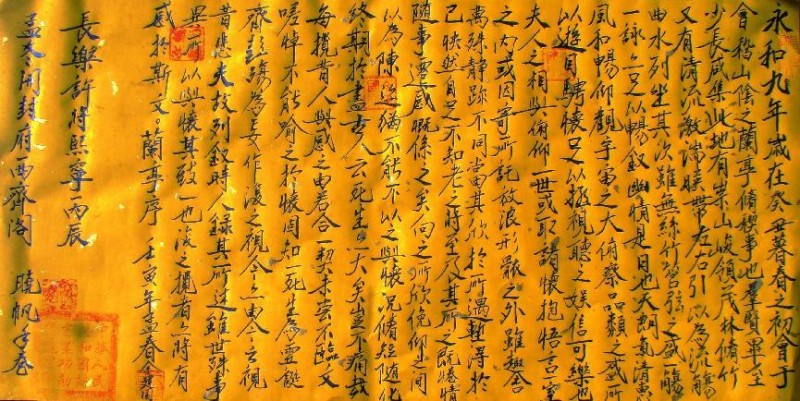 永和九年歲在癸丑暮春之初會于
會稽山陰之蘭亭脩稧事也羣賢畢至
少長咸集此地有崇山峻領茂林脩竹
又有清流激湍暎帶左右引以為流觴
曲水列坐其次雖無絲竹管弦之盛一觴
一詠亦足以暢敘幽情是日也天朗氣清惠
風和暢仰觀宇宙之大俯察品類之盛所
以遊目騁懷足以極視聽之娛信可樂也
夫人之相與俯仰一世或取諸懷抱悟言一室
之內或因寄所託放浪形骸之外雖趣舍
萬殊靜躁不同當其欣於所遇暫得於
己快然自足不知老之將至及其所之既惓情
隨事遷感慨係之矣向之所欣俛仰之間
以為陳迹猶不能不以之興懷況脩短隨化
終期於盡古人云死生亦大矣豈不痛哉
每攬昔人興感之由若合一契未嘗不臨文
嗟悼不能喻之於懷固知一死生為虛誕
齊彭殤為妄作後之視今亦由今之視
昔悲夫故列敘時人錄其所述雖世殊事
異所以興懷其致一也後之攬者亦將有
感於斯文。蘭亭序 壬寅年孟春
長樂許將熙寧丙辰
孟冬開封府西齊閣 曉帆手卷